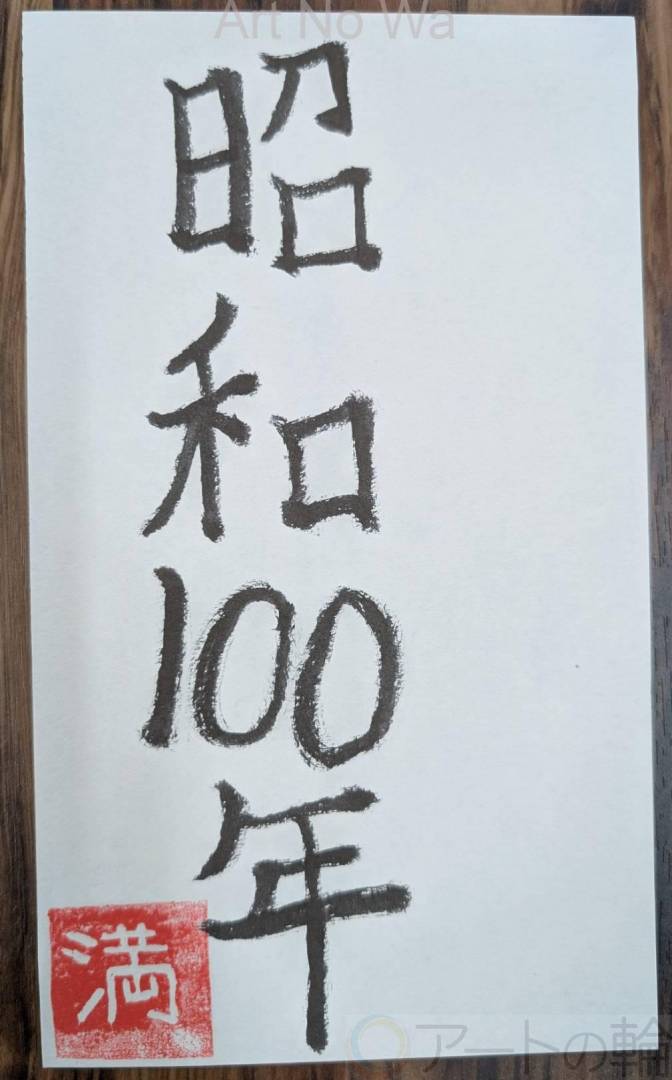 Art No Wa
昭和100年
満
アートの輪